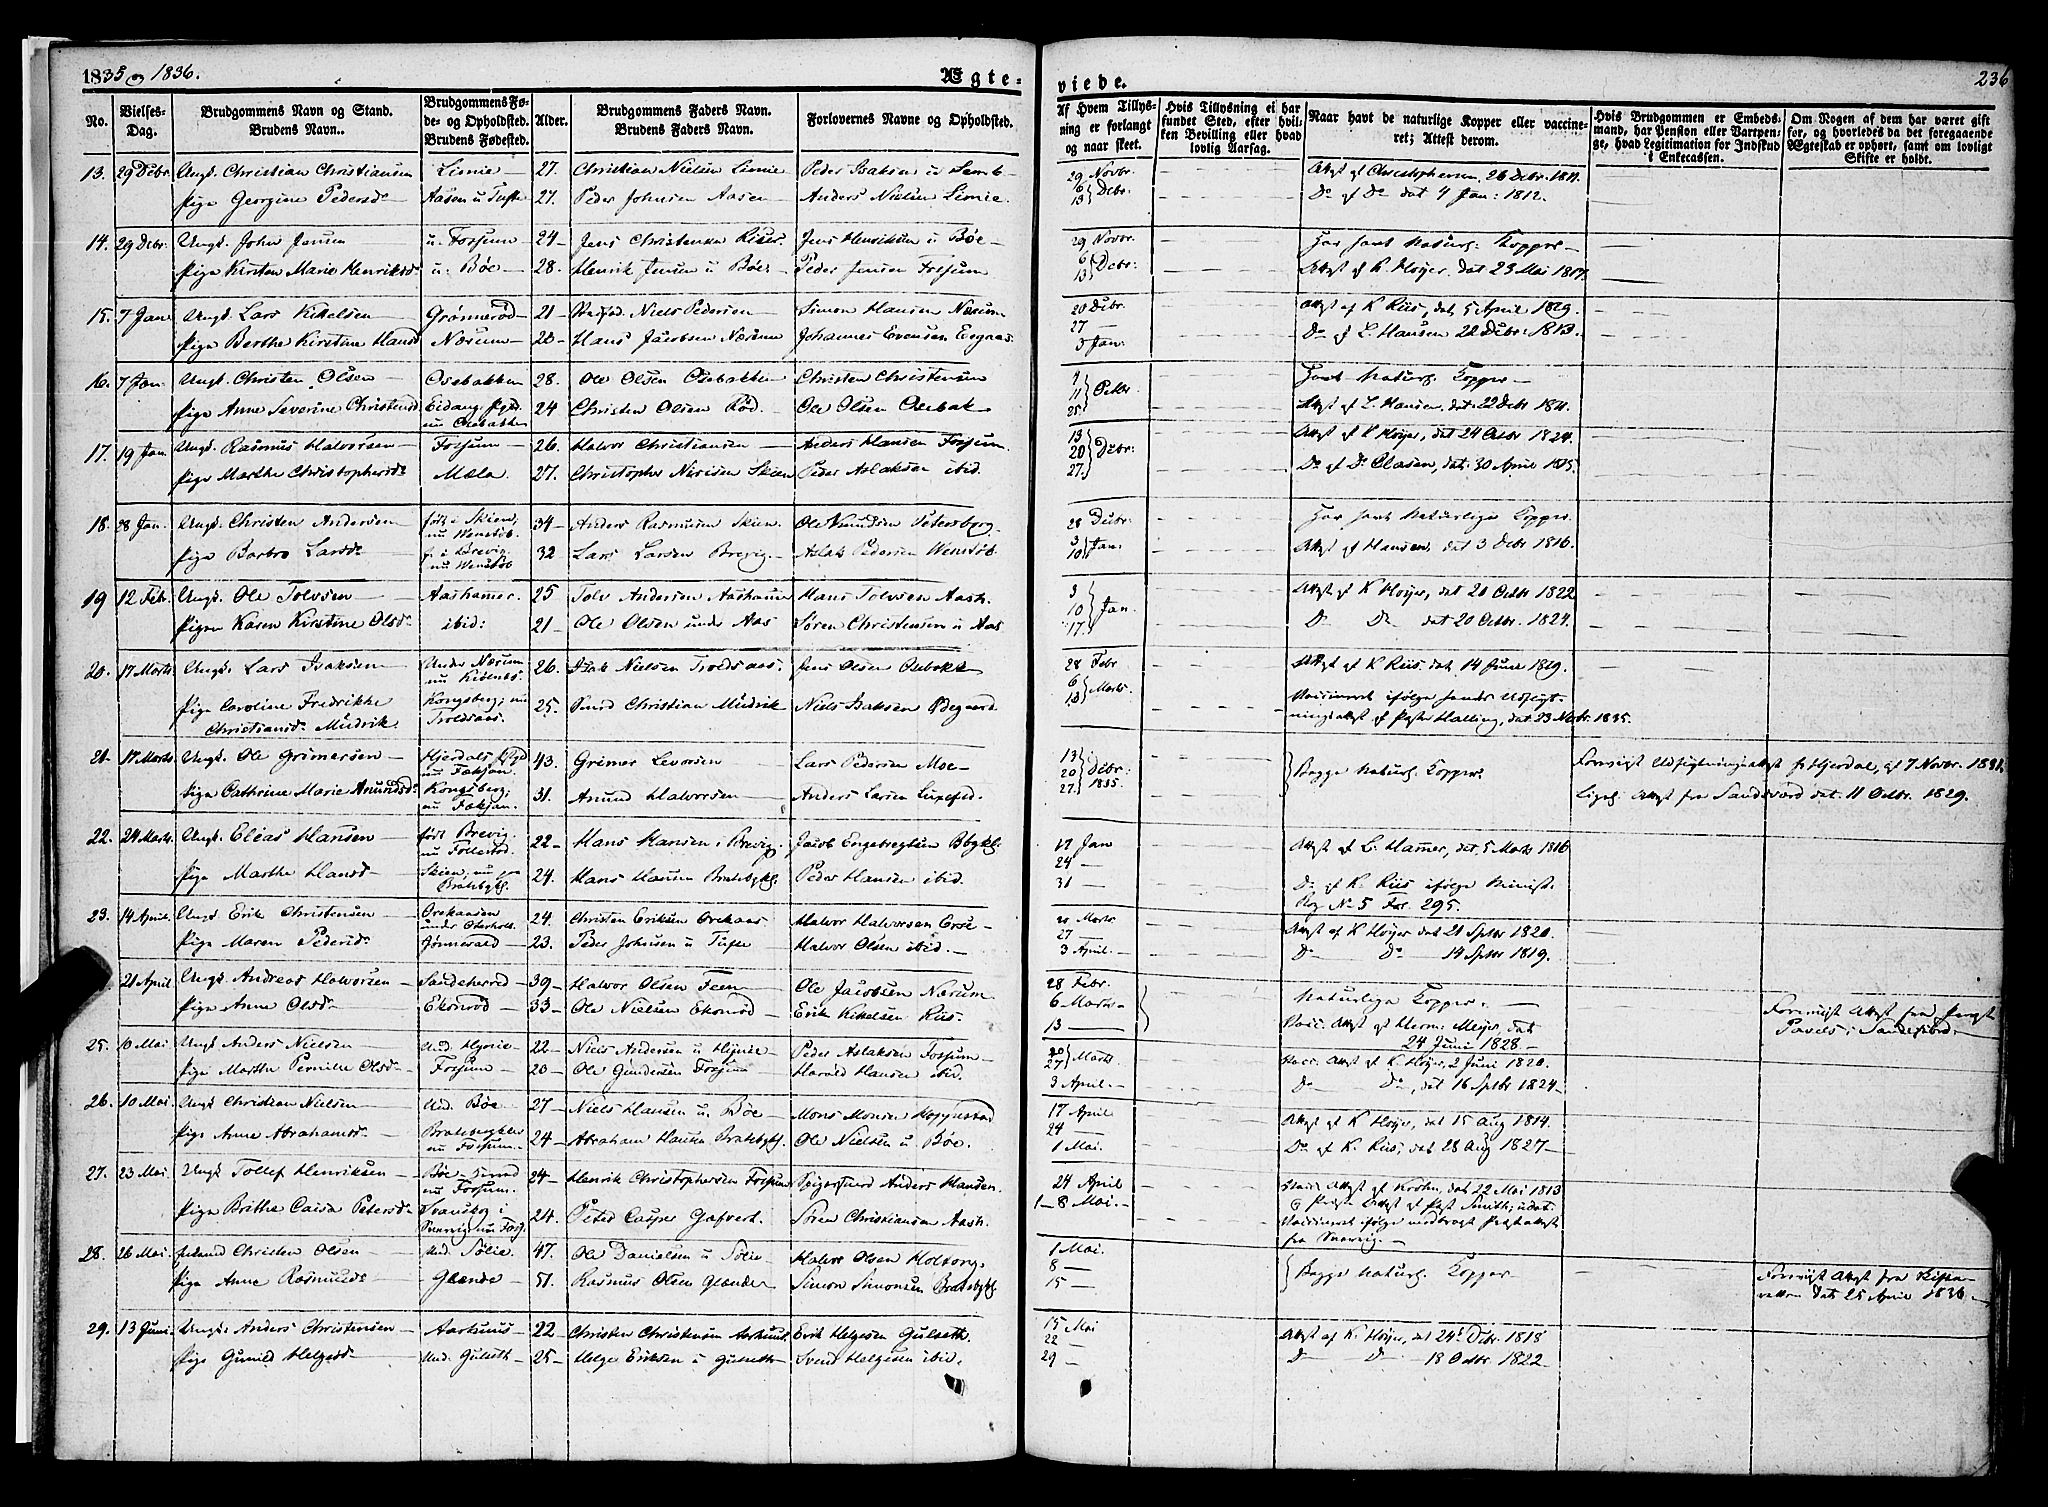 1835 og 1836.
Ægte-
viede.
236
No.
Vielses-
Dag.
Brudgommens Navn og Stand.
Brudens Navn..
Brudgommens Fø-
de- og Opholdsted.
Brudens Fødested.
Alder.
Brudgommens Faders Navn.
Brudens Faders Navn.
Forlovernes Navne og Opholdsted.
Af Hvem Tillys-
ning er forlangt
og naar skeet.
Hvis Tillysning ei har
fundet Sted, efter hvil-
ken Bevilling eller hvad
lovlig Aarsag.
Naar havt de naturlige Kopper eller vaccine-
ret; Attest derom.
Hvis Brudgommen er Embeds-
mand, har Pension eller Vartpen-
ge, hvad Legitimation for Indskud
i Enkecassen.
Om Nogen af dem har været gift
for, og hvorledes da det foregaaende
Ægteskab er ophørt, samt om lovligt
Skifte er holdt.
13. 29 Debr. Ungk. Christian Christiansen Limie 27. Christian Nielsen Limie Peder Isaksen u 29 Novbr. Attest af Christophersen, 26 Debr. 1811.
Pige Georgine Pedersd. Aasen u Tufte 27. Peder Johnsen Aasen Anders Nielsen Limie. 6 13 Debr. Do af Do dat 4 Jan: 1812.
14. 29 Debr. Ungk. John Jensen u. Fossum 24 Jens Christensen Jens Henriksen u Bøe 29 Novbr. Har havt Naturl: Kopper
Pige Kirsten Marie Henriksd. u. Bøe 28. Henrik Jensen u Bøe Peder Jensen Fossum 6 13 Debr. Attest af K. Høyer, dat 23 Mai 1817.
15. 7 Jan Ungk. Lars Kittelsen Grønnerød 21 Niels Pedersen Simon Hansen Nærum 20 Debr. Attest af K Riis, dat 5 April 1829.
Pige Berthe Kirstine Hansd. Nærum 23 Hans Jacobsen Nærum Johannes Evensen 27 3 Jan: Do af L. Hansen 22 Debr: 1813.
16. 7 Jan. Ungk. Christen Olsen Osebakken 28. Ole Olsen Osebakken Christen Christensen 4 11 25 Octbr. Havt Naturl. Kopper
Pige Anne Severine Christensd. Eidang. Pgd. nu Osebakken 24 Christen Olsen Rød. Ole Olsen Osebak Attest af L. Hansen, dat: 22 Debr 1811.
17. 19 Jan. Ungk. Rasmus Halvorsen Fossum 26. Halvor Christiansen Anders Hansen Fossum 13 20 27. Debr: Attest af K Høyer, dat 24 Octbr 1824.
Pige Marthe Christophersd. Mæla. 27. Christopher Skien Peder Aslaksen ibid. Do af Dr Clasen, dat: 30 April 1815.
18. 28 Jan. Ungk. Christen Andersen født i Skien, nu Wenstøb 34 Anders Rasmusen Skien. Ole Knudsen Petersborg. 28 Debr: Har havt Naturlige Kopper.
Pige Barbro Larsd. f. i Brevig, nu Wenstøb 32 Lars Larsen Brevig. Aslak Pedersen Wenstøb 3 10 Jan: Attest af Hansen, dat 3 Debr 1816.
19 12 Febr. Ungk. Ole Tolvsen Aashamer. 25 Tolv Andersen Aashamer Hans Tolvsen Aash. 3 10 17. Jan. Attest af K Høyer, dat 20 Octbr 1822
Pigen Karen Kirstine Olsd. ibid: 21 Ole Olsen under Aas Søren Christensen u Aas. Do Do dat 20 Octbr. 1824.
20. 17 Marts. Ungk. Lars Isaksen Under Nærum nu Kiølnes. 26. Isak Nielsen Troldsaas. Jens Olsen Osebakk 28 Febr 6 13 Marts. Attest af K Riis, dat 14 Juni 1819.
Pige Caroline Fredrikke Christiansd. Mudrik. Kongsberg; nu Troldsaas. 25. Christian Mudrik Niels Isaksen Ødegaard Vaccineret ifølge hendes Udflyt-
ningsattest af Pastor Halling, dat 23 1835.
21. 17 Marts Ungk. Ole Grimersen Hjerdals Pgd nu Foksjan. 43. Grimer Levorsen Lars Pedersen Moe 13 20 27. Debr: 1835. Begge Naturl: Kopper. Foreviist Udflytningsattest fr Hjerdal, af 7 Novbr. 1831.
Pige Cathrine Marie Anundsd. Kongsberg; nu Foksjan. 31. Anund Halvorsen Anders Larsen Ligel. Attest fra Sandsværd dat. 11 Octbr. 1829.
22. 24 Marts. Ungk. Elias Hansen født Brevig. nu Follestad. 22 Hans Hansen, Brevig Jacob Engebregtsen 17 Jan Attest af L. Hamer, dat. 5 Marts 1816
Pige Marthe Hansd. Skien, nu paa Bratsbgkl. 24. Hans Hansen Bratsbgkl. Peder Hansen ibid. 24 31 Do af K. Riis ifølge Minist.
Reg No 5 Fol. 295.
23. 14 April. Ungk Erik Christensen under 24. Christen Eriksen Halvor Halvorsen 20 Marts Attest af K Høyer dat 20 Sptbr 1820.
Pige Maren Pedersd. Jønnevald 23. Peder Johnsen u Tufte Halvor Olsen ibid. 27 3 April. Do Do 14 Sptbr 1819.
21 April Ungk. Andreas Halvorsen Sandeherred 39 Halvor Olsen Feen Ole Jacobsen Nærum 28 Febr. Naturlige Kopper.
Pige Anne Olsd. Ekonrød 33 Ole Nielsen Ekonrød Erik Kittelsen Riis. 6 Marts 13 Vacc. Attest af Herm: Meyer, dat 24 Juni 1828. Foreviist Attest fra Provst Pavels i Sandeherred
25. 10 Mai. Ungk Anders Nielsen Und. 22 Niels Andersen u Peder Aslaksen Fossum 20 27 Marts Vacc. Attest af K. Høyer, 2 Juni 1820.
Pige Marthe Pernille Olsd. Fossum 23 Ole Gundersen Fossum Harald Hansen ibid. 3 April. Do Do, dat 16 Sptbr 1824.
26. 10 Mai. Ungk Christian Nielsen Und. Bøe 27 Niels Hansen u. Bøe Mons Monsen 17 April Attest af K Høyer, dat 15 Aug 1814.
Pige Anne Abrahamsd. Bratsbergklev nu Fossum. 24 Abraham Hansen Bratsbgkl. Ole Nielsen u. Bøe. 24 1 Mai. Do af K. Riis, dat 28 Aug 1827
27. 23 Mai. Ungk Tollef Henriksen Bøe nu Fossum. 24 Henrik Christophersen Fossum Anders Hansen. 24 April Vacc. Attest af Krohn, dat 22 Mai 1813
Pige Brithe Caisa Petersd. i Sverrig nu Foss. 24. Peter Casper Gafvert. Søren Christiansen Aash. 1 8 Mai. Attest af Past Smith, udat.
Vaccineret ifølge medbragt Præsteattest fra Sverrig.
28. 26 Mai. Christen Olsen Und. Sølie. 47. Ole Danielsen u Sølie Halvor Olsen Holtorg. 1 Mai. 8 15 Begge Naturl. Kopper Foreviist Attest fra Skifte-
retten dat: 25 April 1836.
Pige Anne Rasmusd. Glænde 51. Rasmus Olsen Glænde Simon Simonsen Bratsbgkl.
29. 13 Juni. Ungk. Anders Christensen Aarhuus 22 Christen Christensen Aarhuus. Erik Helgesen Gulseth. 15 Mai Attest af K. Høyer, dat 24 Debr. 1818
Pige Gunild Helgesd. Und. Gulseth 25 Helge Eriksen u Gulseth Svend Helgesen ibid. 22 29 Do Do 18 Octbr. 1822